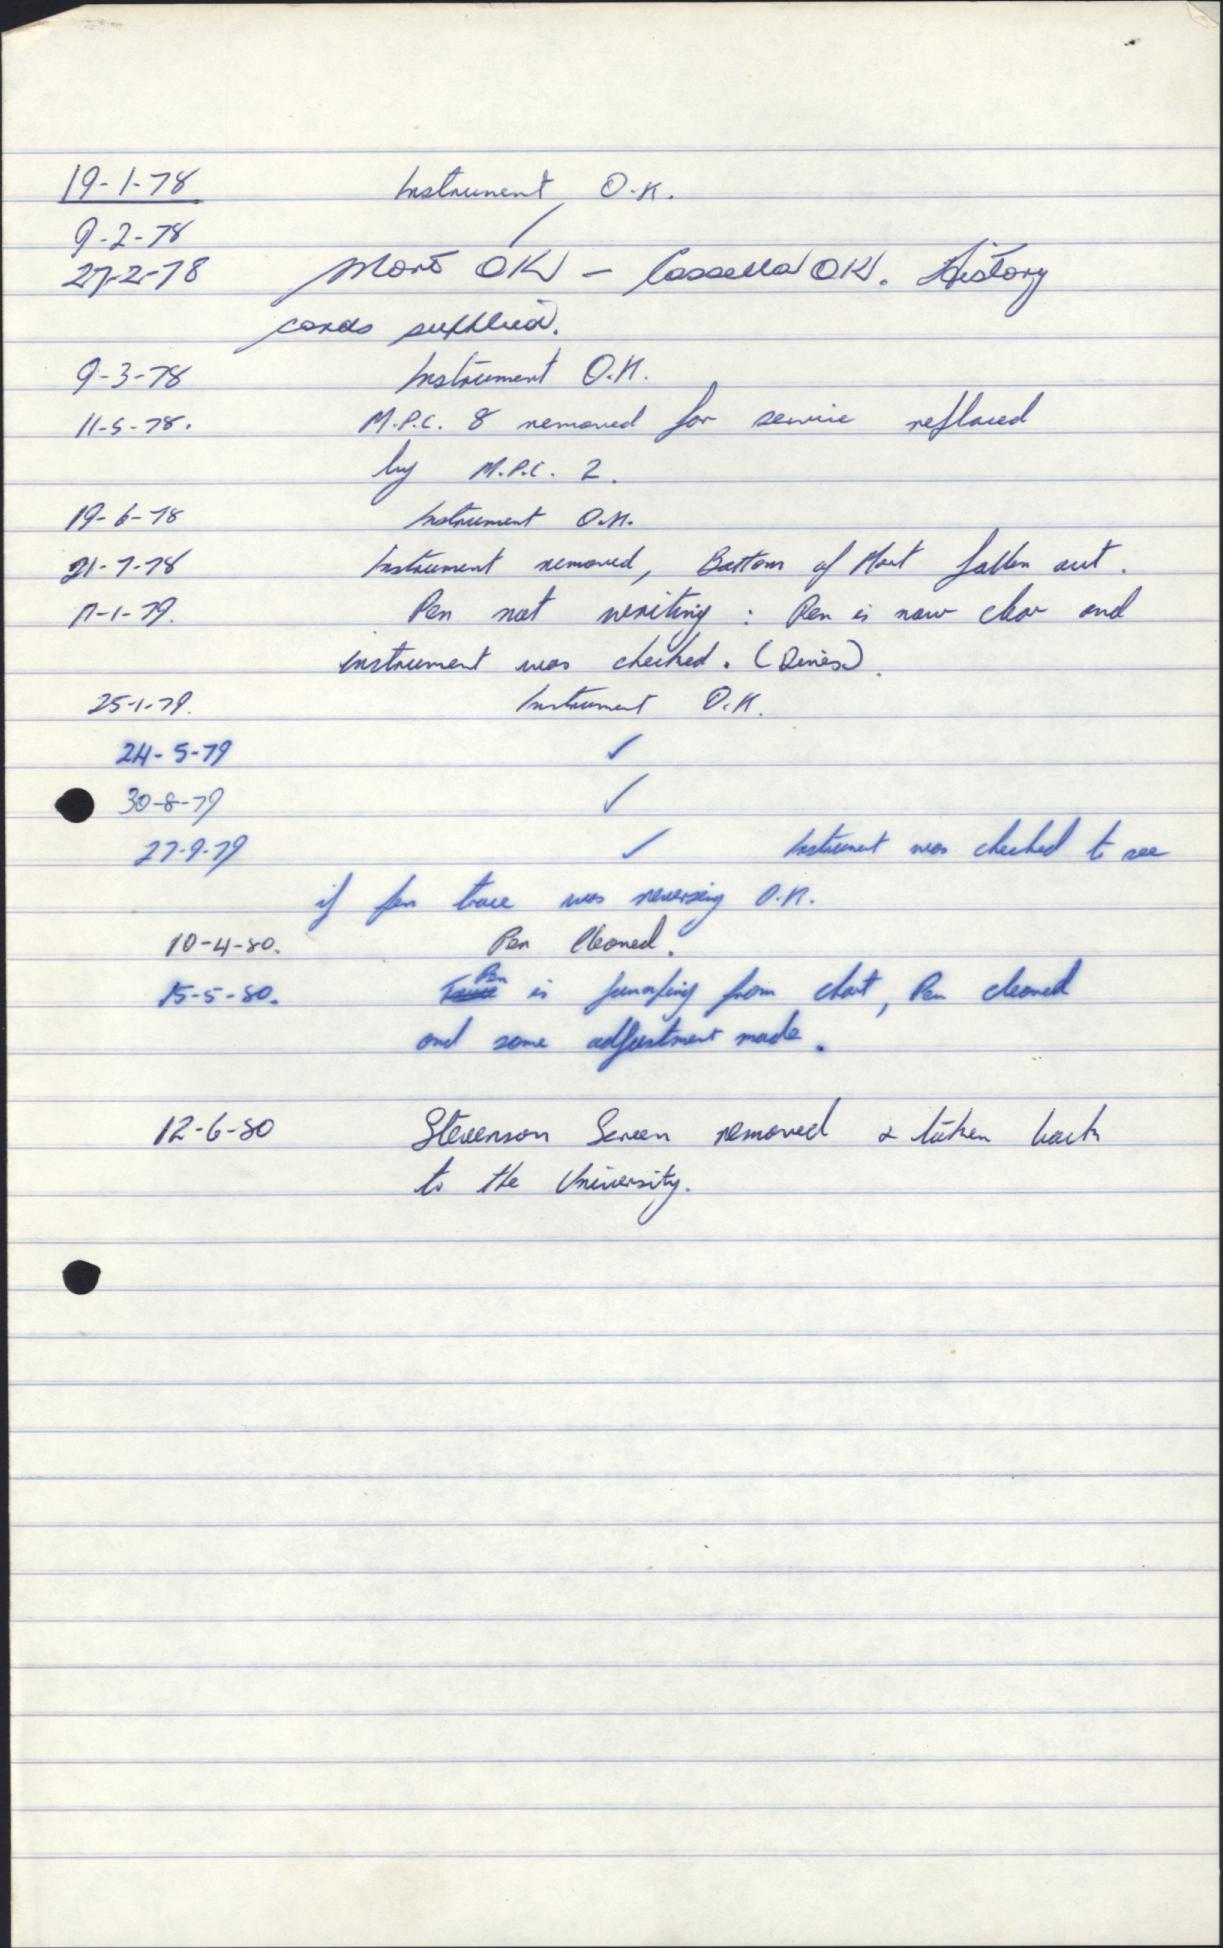 19-1-78 Instrument O.K.
9-2-78 ✓
27-2-78 Mort OK - Cassella OK. History
cards supplied.
9-3-78 Instrument O.K.
11-5-78. M.P.C. 8 removed for service replaced
by M.P.C. 2.
19-6-78 Instrument O.K.
21-7-78 Instrument removed, Bottom of Mort fallen out.
11-1-79. Pen not writing : Pen is now clear and
instrument was checked. (Dines).
25-1-79. Instrument O.K.
24-5-79 ✓
30-8-79 ✓
27-9-79 ✓ Instrument was checked to see
if pen trace was reversing O.K.
10-4-80. Pen Cleaned.
15-5-80. Pen is jumping from chart, Pen cleaned
and some adjustment made.
12-6-80 Stevenson Screen removed & taken back
to the University.